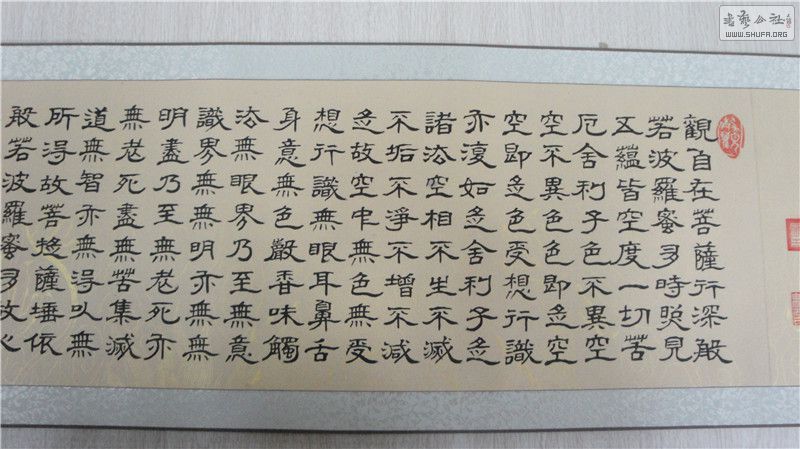 觀自在菩薩行深般
若波羅蜜多時照見
五蘊皆空度一切苦
厄舍利子色不異空
空不異色色即是空
空即是色受想行識
亦復如是舍利子是
諸法空相不生不滅
不垢不淨不增不減
是故空中無色無受
想行識無眼耳鼻舌
身意無色聲香味觸
法無眼界乃至無意
識界無無明亦無無
明盡乃至無老死亦
無老死盡無苦集滅
道無智亦無得以無
所得故菩提薩埵依
般若波羅蜜多故心
書藝公社
WWW.SHUFA.ORG